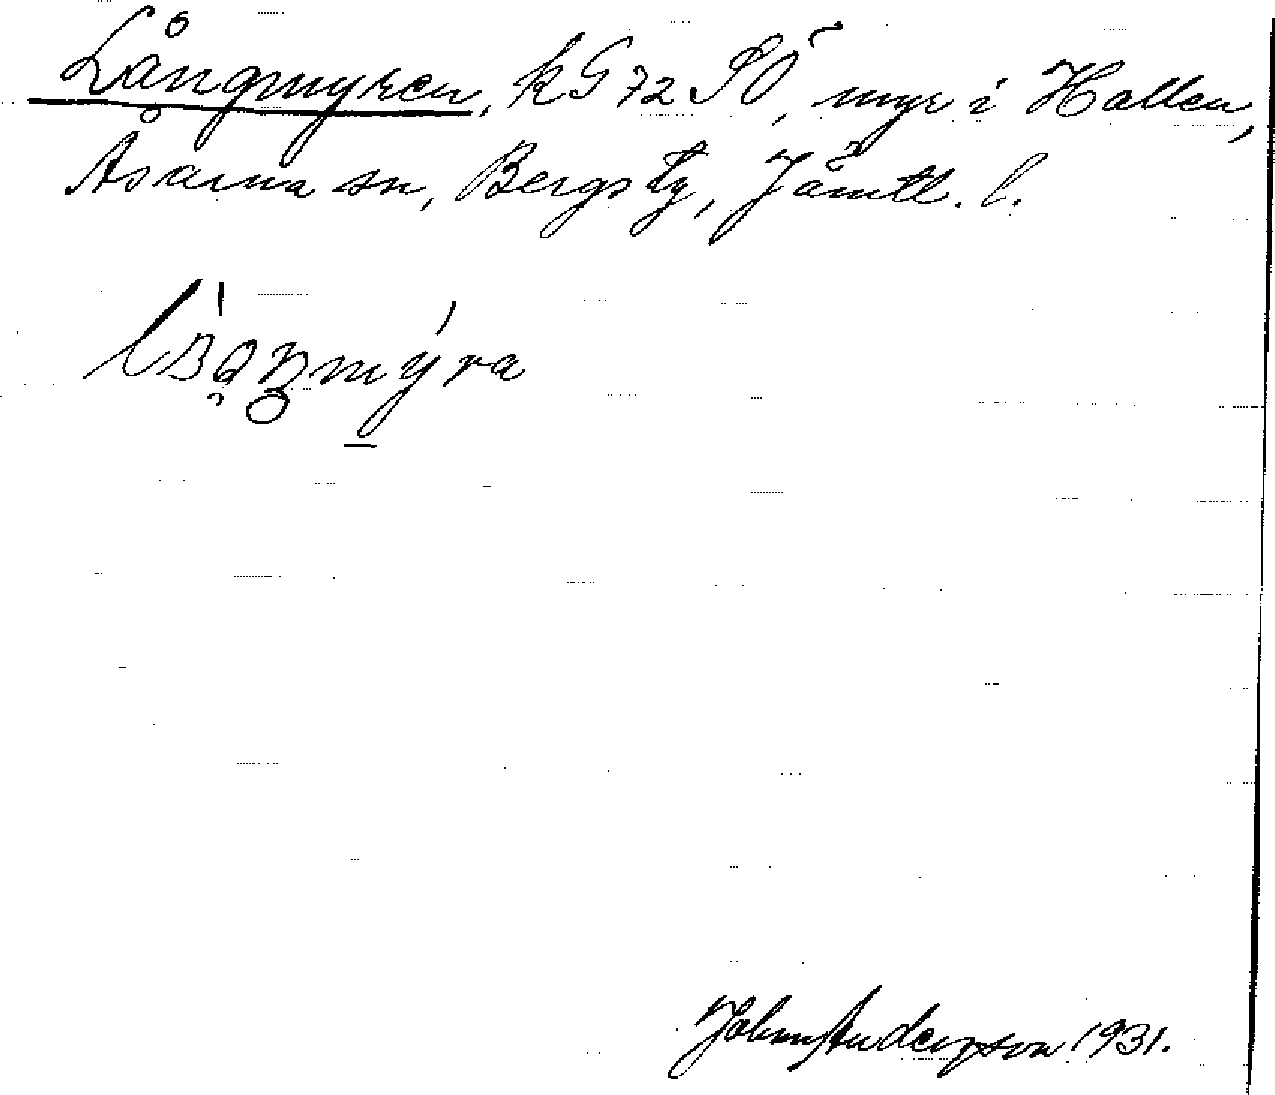 Långmyren, kG 72 SÖ, myr i Hallen,
Åsarna sn, Bergs tg, Jämtl. l.
John Anderson 1931.